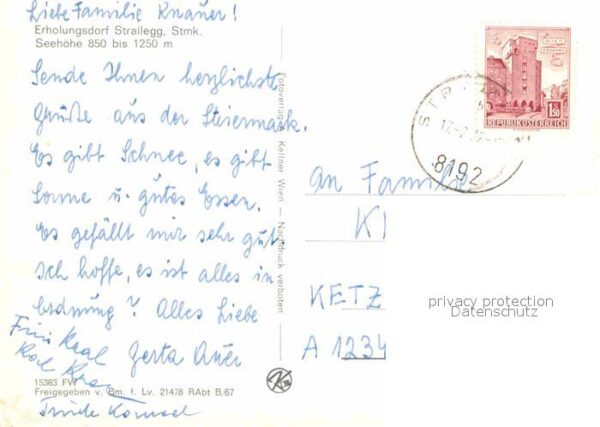 Liebe Familie Knauer!
Erholungsdorf Strallegg, Stmk.
Seehöhe 850 bis 1250 m
Sende Ihnen herzlichste
Grüße aus der Steiermark.
Es gibt Schnee, es gibt
Sonne u. gutes Essen.
Es gefällt mir sehr gut.
Ich hoffe, es ist alles in
Ordnung? Alles Liebe
Gerta Auer
15383 FW
Freigegeben v. Bm. f. Lv. 21478 RAbt B,67
Fotoverlag Kellner Wien — Nachdruck verboten
1.50
REPUBLIK ÖSTERREICH
8192
An Familie
KETZ
A 1234
privacy protection
Datenschutz